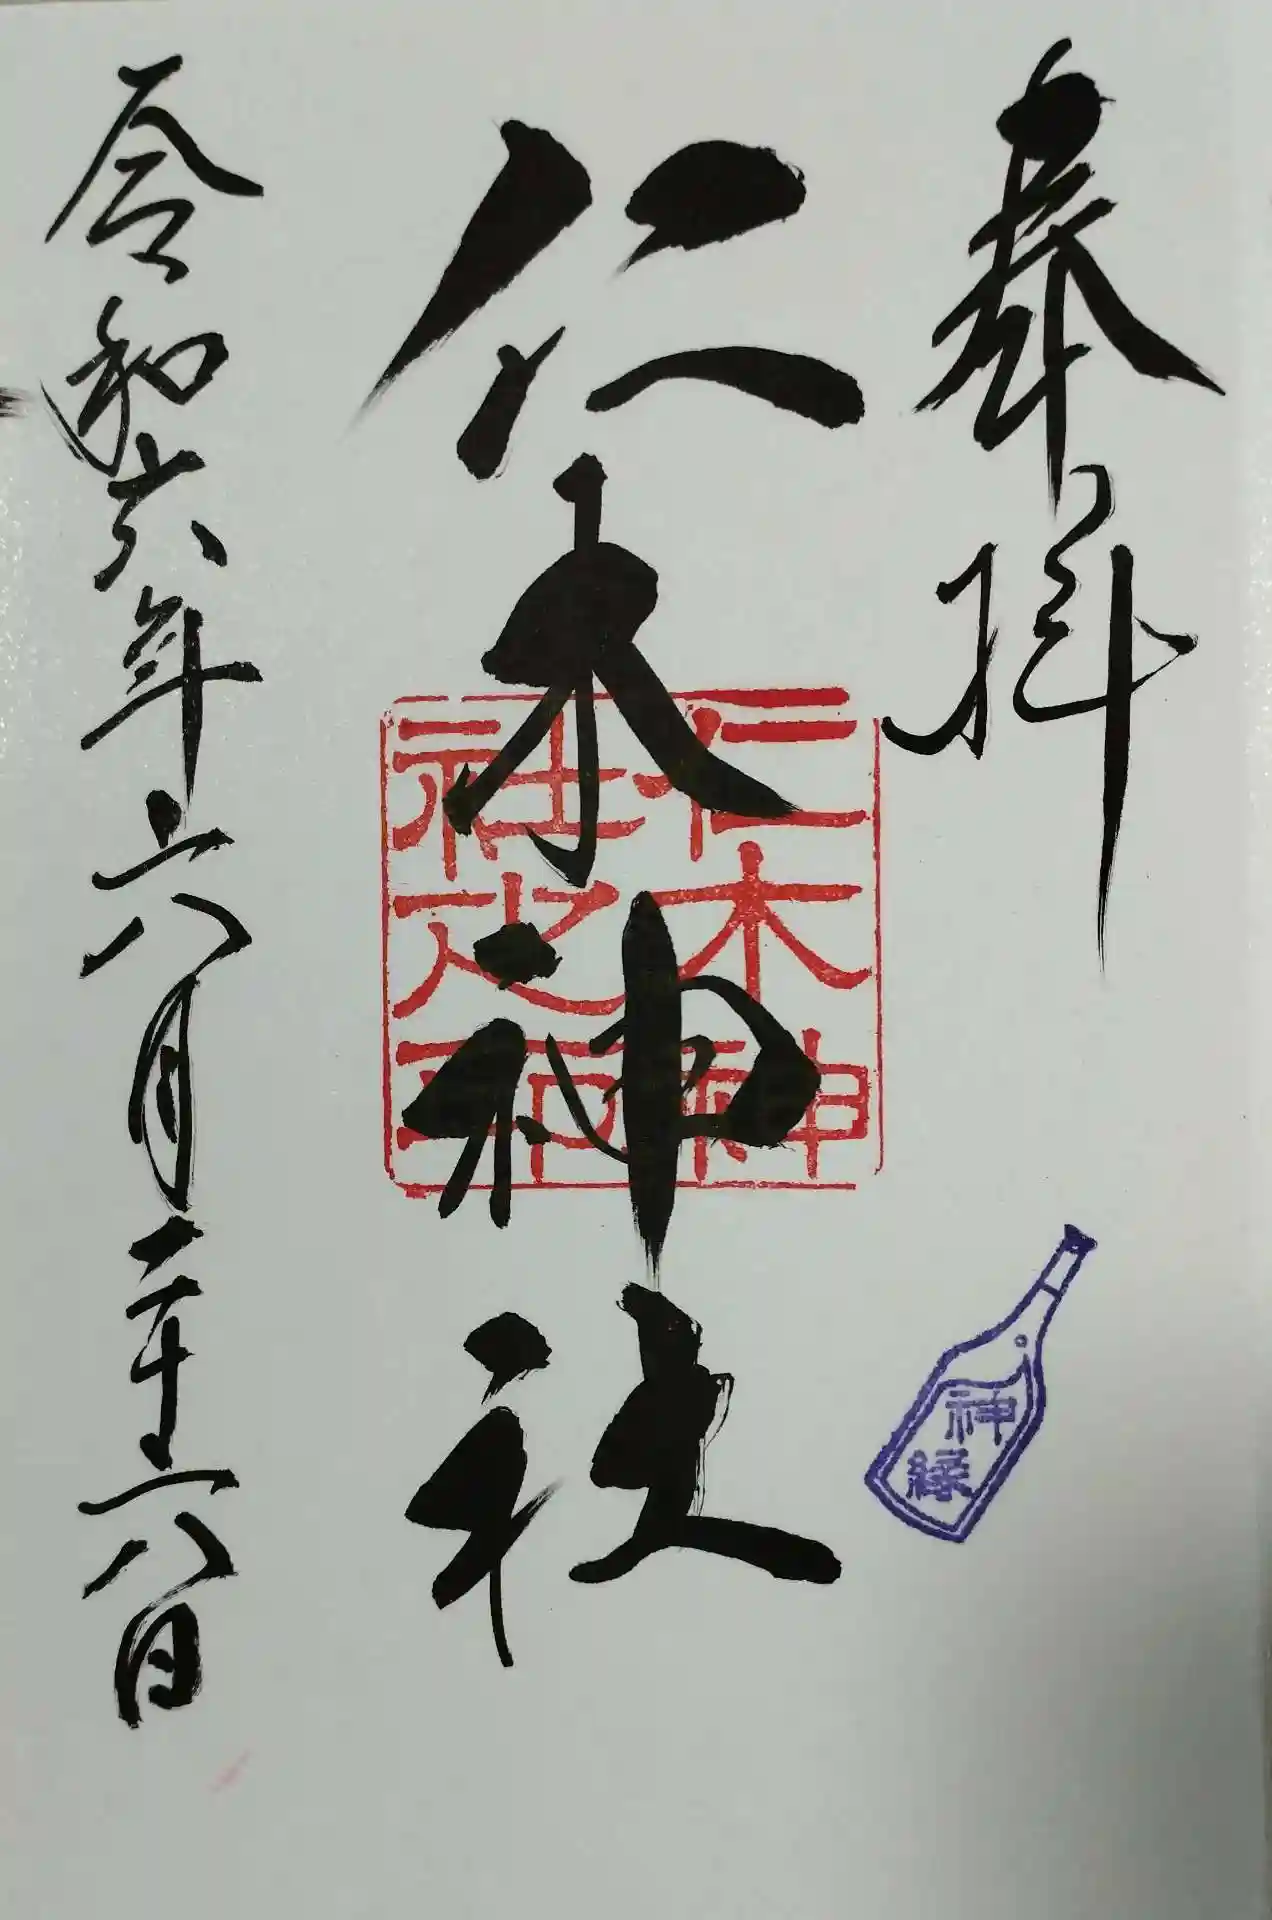 奉拝
仁木神社
仁木神
社之印
神縁
令和六年六月二十六日